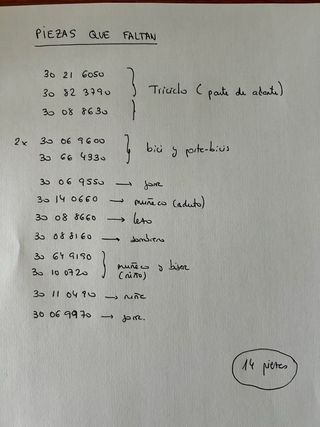 PIEZAS QUE FALTAN
30 21 6050
30 82 3790 Triciclo (parte de adelante)
30 08 8630
2x 30 06 9600 bici y porta-bicis
30 66 4330
30 06 9550 →
30 14 0660 → muñeco (adulto)
30 08 8660 →
30 08 8160 → sombrero
30 64 9190 muñeco y
30 10 0720 (niño)
30 11 0490 → niña
30 06 9970 →
14 piezas